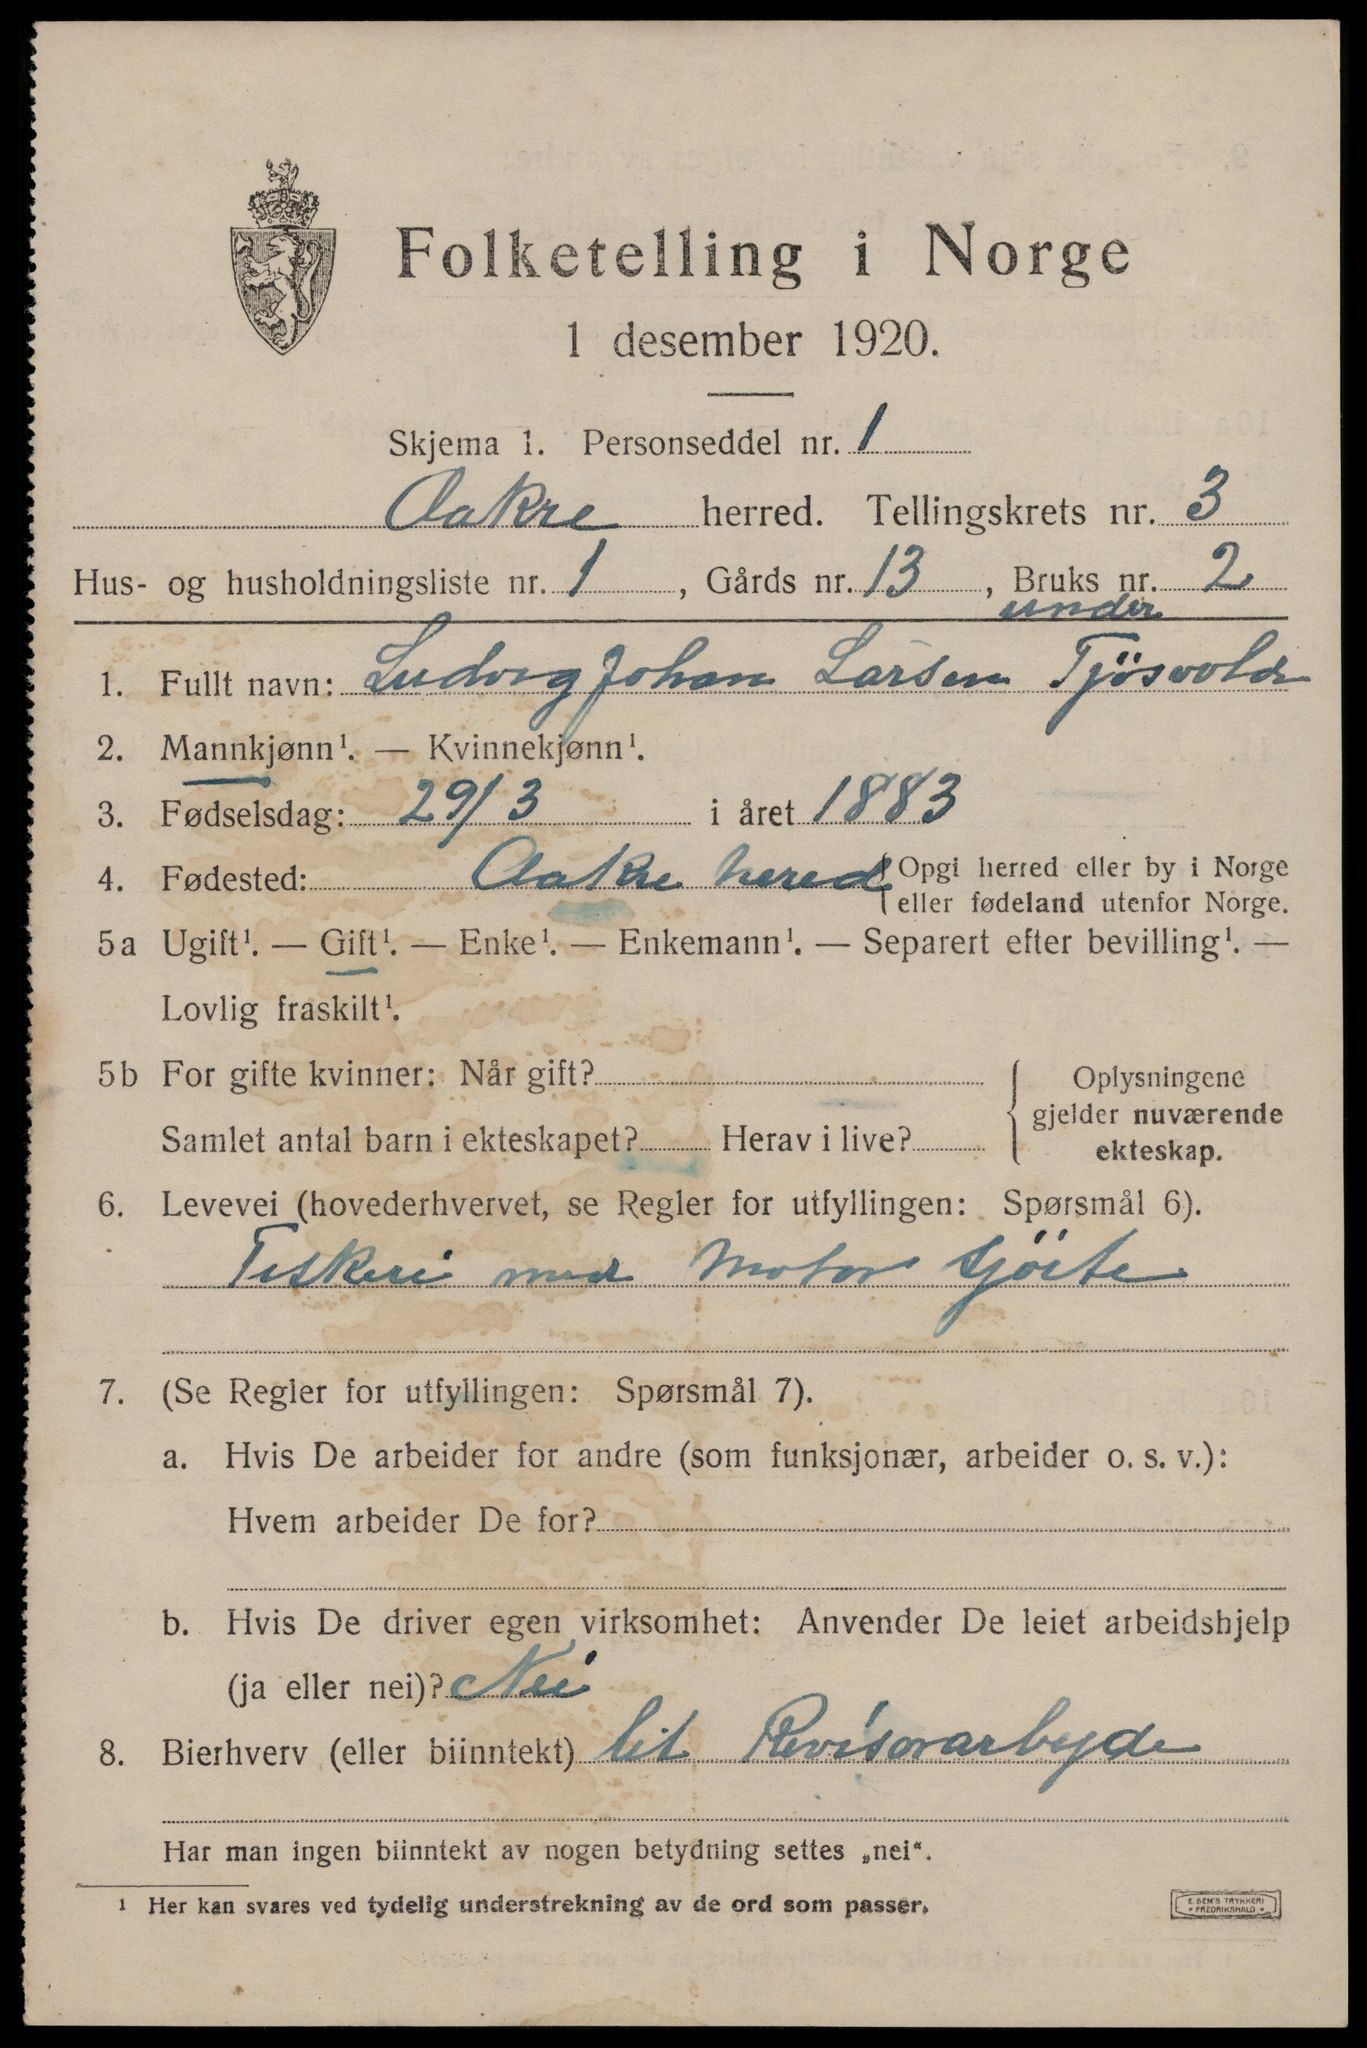 Folketelling i Norge
1 desember 1920.
Skjema 1. Personseddel nr. 1
Aakre herred. Tellingskrets nr. 3
Hus- og husholdningsliste nr. 1, Gårds nr. 13, Bruks nr. 2
under
1. Fullt navn: Ludvig Johan Larsen Tjösvold
2. Mannkjønn¹. — Kvinnekjønn¹.
3. Fødselsdag: 29/3 i året 1883
4. Fødested: Aakre hered { Opgi herred eller by i Norge
eller fødeland utenfor Norge.
5a Ugift¹. — Gift¹. — Enke¹. — Enkemann¹. — Separert efter bevilling¹. —
Lovlig fraskilt¹.
5b For gifte kvinner: Når gift?
Samlet antal barn i ekteskapet? Herav i live?
{ Oplysningene
gjelder nuværende
ekteskap.
6. Levevei (hovederhvervet, se Regler for utfyllingen: Spørsmål 6).
Fiskeri med Motor sjöite
7. (Se Regler for utfyllingen: Spørsmål 7).
a. Hvis De arbeider for andre (som funksjonær, arbeider o. s. v.):
Hvem arbeider De for?
b. Hvis De driver egen virksomhet: Anvender De leiet arbeidshjelp
(ja eller nei)? Nei
8. Bierhverv (eller biinntekt) lit Revisorarbeyde
Har man ingen biinntekt av nogen betydning settes „nei“.
¹ Her kan svares ved tydelig understrekning av de ord som passer.
E. SEM'S TRYKKERI
* FREDRIKSHALD *